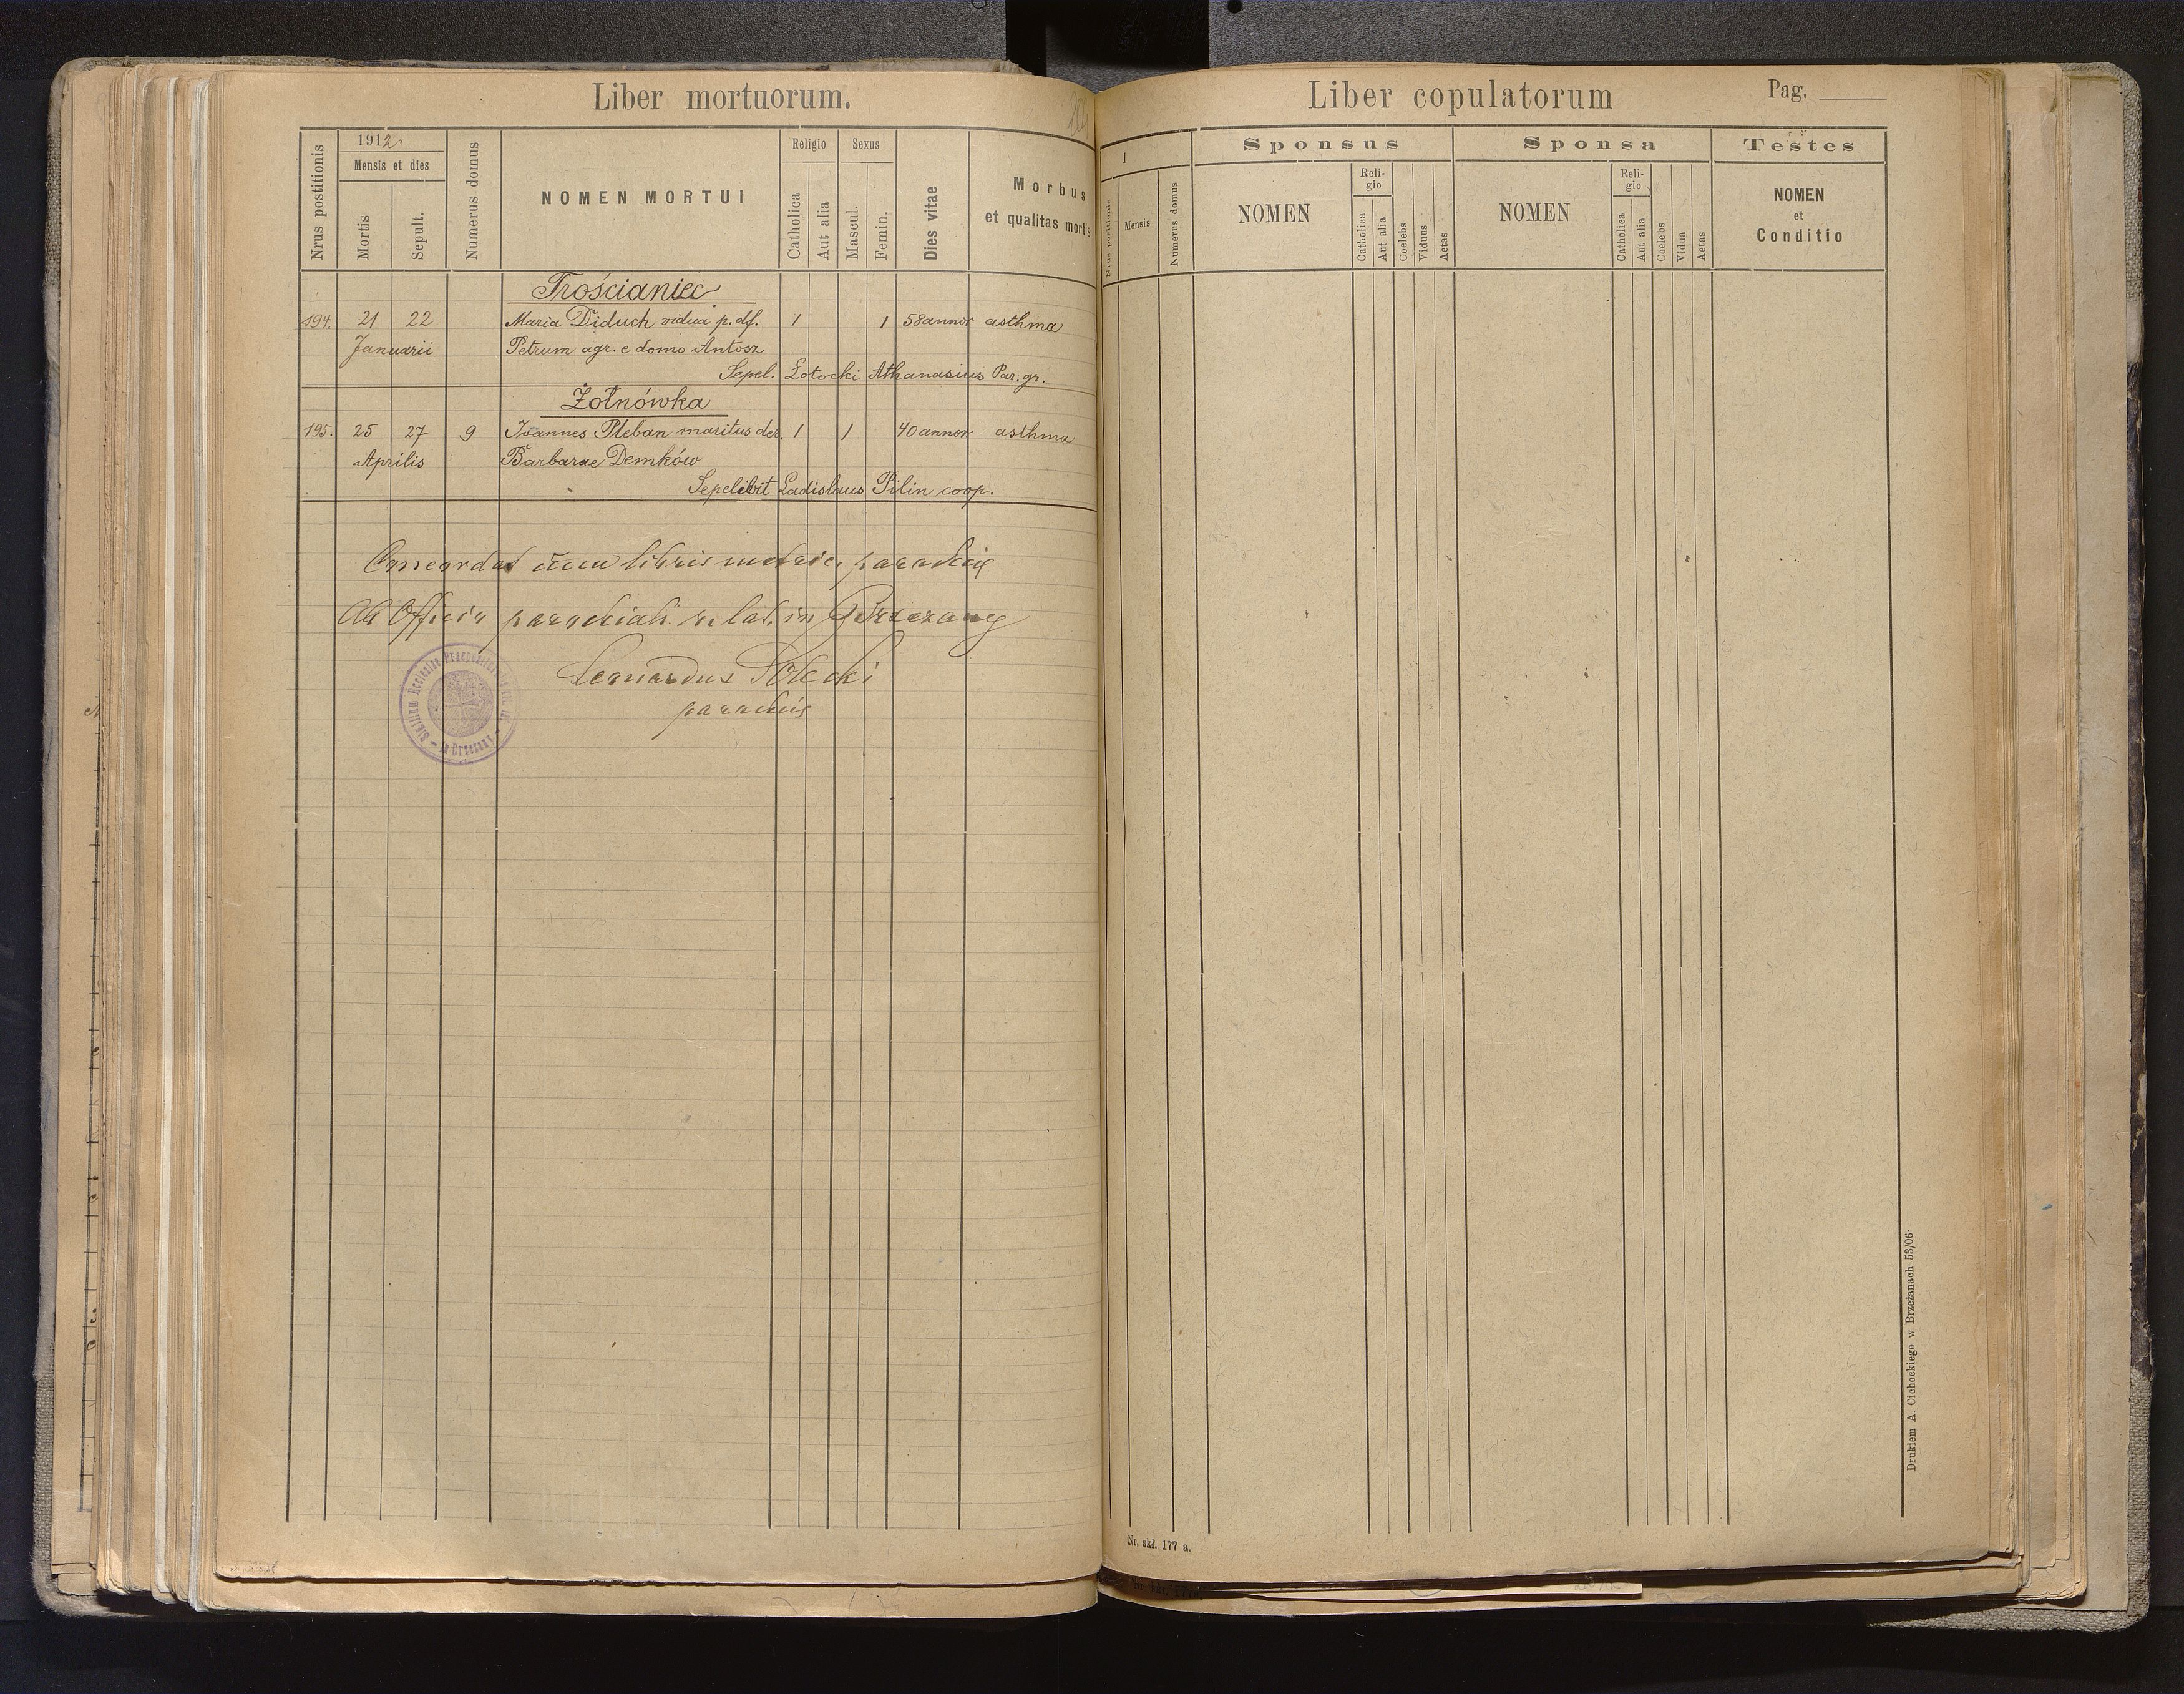 Liber mortuorum.
1912.
Nrus postitionis
Mensis et dies
Mortis
Sepult.
Numerus domus
NOMEN MORTUI
Religio
Catholica
Aut alia
Sexus
Mascul.
Femin.
Dies vitae
Morbus
et qualitas mortis
Trościaniec
194. 21 22 Maria Diduch vidua p. df. 1 1 58 annor asthma
Januarii Petrum agr. e domo Antosz
Sepel. Łotocki Athanasius Par. gr.
Żołnówka
195. 25 27 9 Joannes Pleban maritus der. 1 1 40 annor asthma
Aprilis Barbarae Demków
Sepelibit Ladislaus Pilin coop.
Concordat cum libris metric. parochiae
Ab Officio parochiali r. lat. in Brzezany
Leonardus Solecki
parochus
Sigillum Ecclesiae
in Brzeżany
Liber copulatorum
Pag.
1
Nrus postitionis
Mensis
Numerus domus
Sponsus
NOMEN
Reli-
gio
Catholica
Aut alia
Coelebs
Viduus
Aetas
Sponsa
NOMEN
Reli-
gio
Catholica
Aut alia
Coelebs
Vidua
Aetas
Testes
NOMEN
et
Conditio
Drukiem A. Cichockiego w Brzeżanach 53/06
Nr. skł. 177 a.